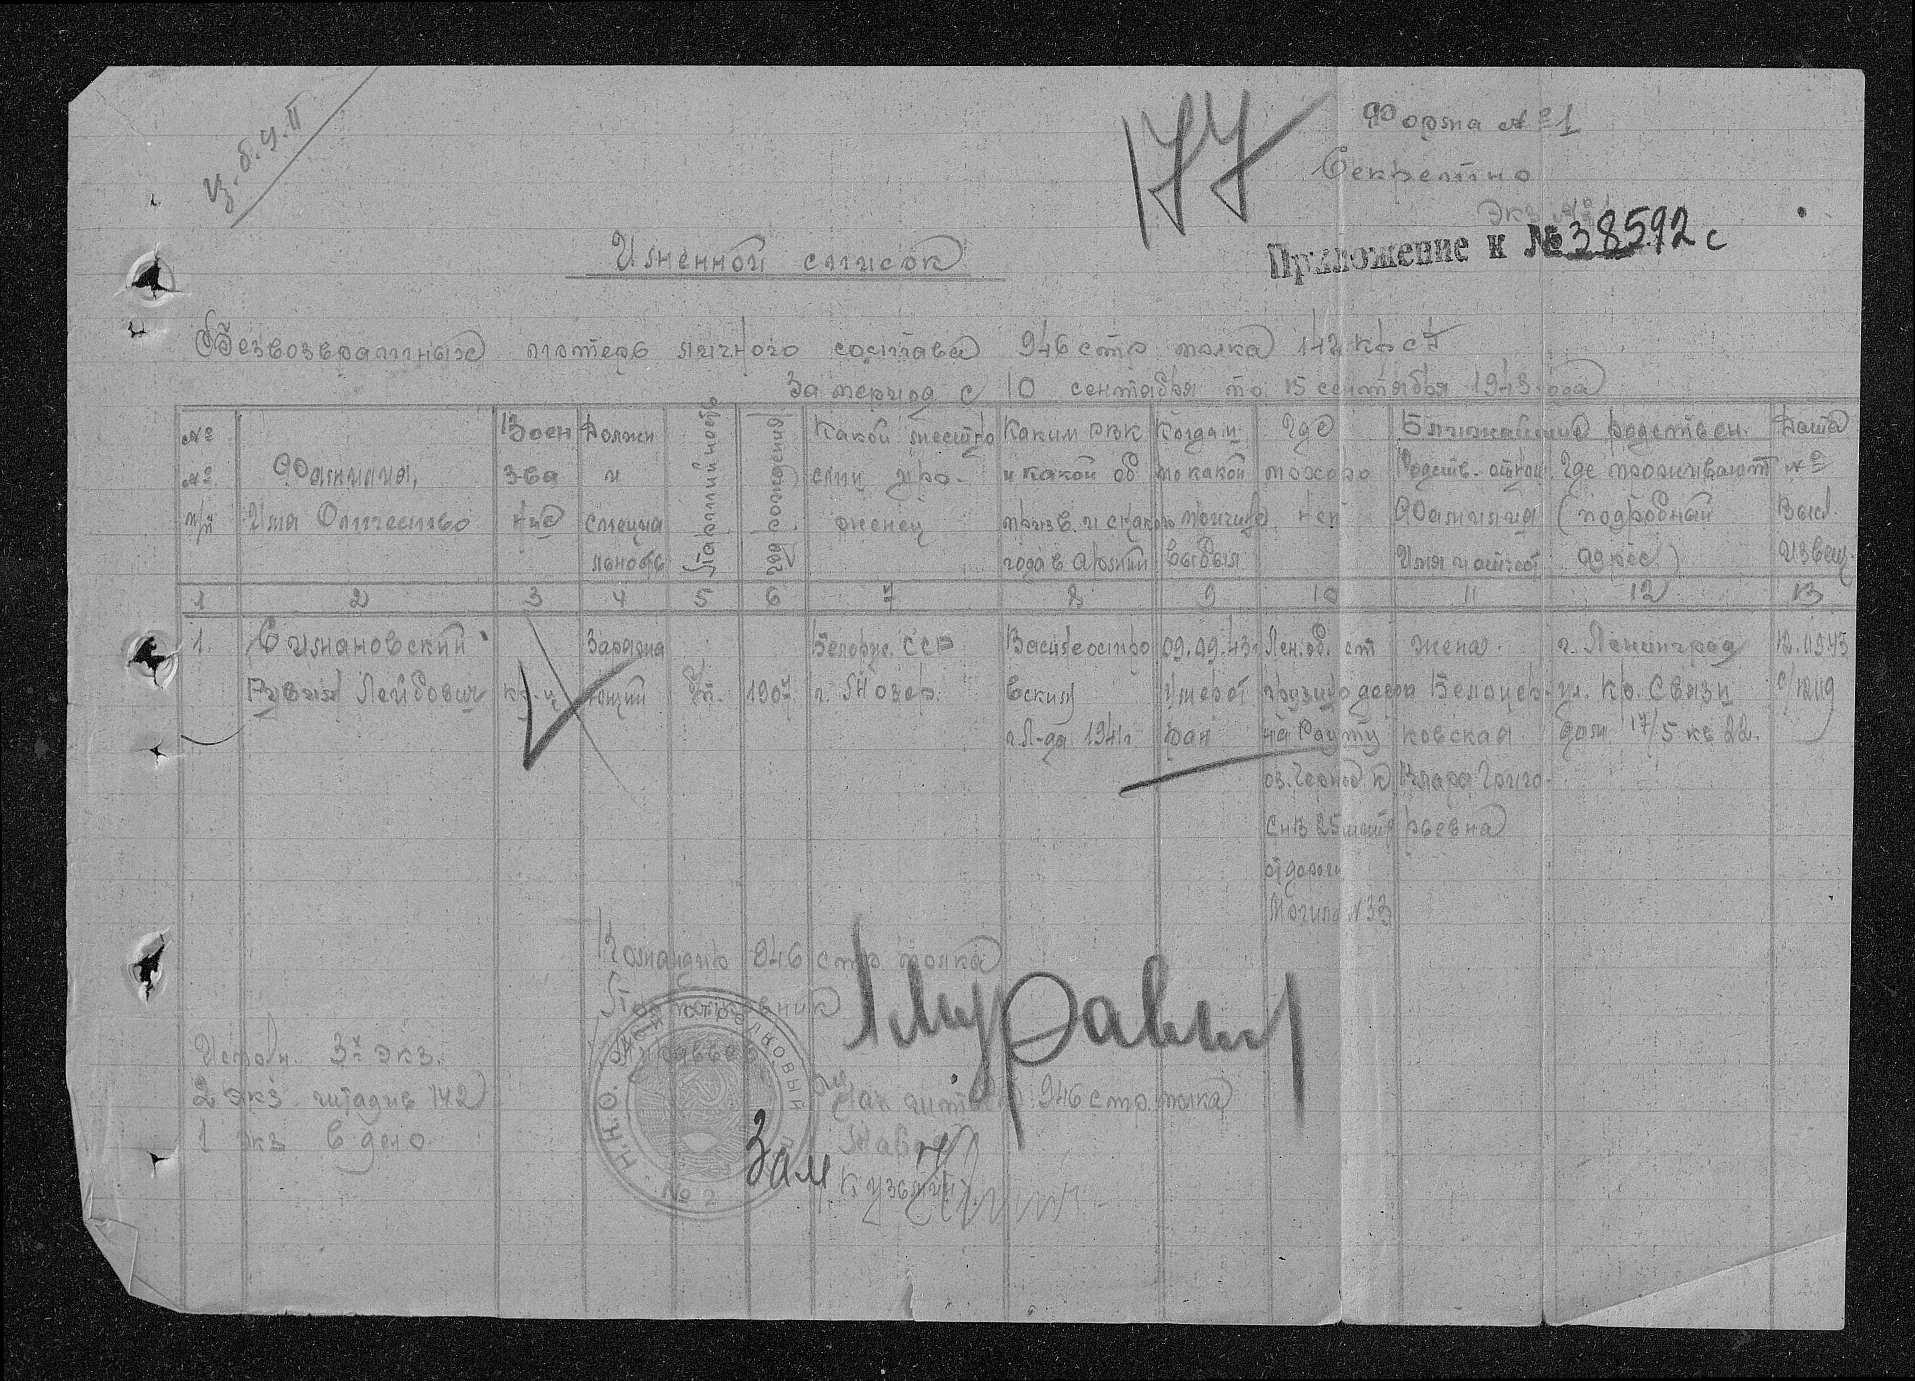 177
Форма № 1
Секретно
Экз. №
Приложение к № 38592 с
Именной список
Безвозвратных потерь личного состава 946 стр полка 142 кр сд
За период с 10 сентября по 15 сентября 1943 года
№ № п/п
Фамилия, Имя Отчество
Воен зва ние
Должн и специа льность
Партийность
год рождения
Какой местно сти уро- женец
Каким РВК и какой об призв. и скакого года в Армии
Когда и по какой причине выбыл
Где похоро нен
Ближайшие родствен.
Родств. отнош. Фамилия Имя и отчест
Где проживают (подробный адрес)
Дата № Высл. извещ.
1 2 3 4 5 6 7 8 9 10 11 12 13
1. Симановский Рувим Лейбович
кр-ц
Заряжа ющий
1907
Белорус. ССР г. Мозер.
Василеостро вским г. Л-да 1941 г
09.09.43. Умер от ран
Лен. об. ст грузино дорога на Рауту оз. Черное к СНВ 25 метр от дороги Могила № 33
жена. Белоцер- ковская Клара Григо- рьевна
г. Ленинград ул. Кр. Связи дом 17/5 кв 22.
12.09.43 с/1209
Командир 946 стр. полка
Подполковник
Муравьев
Нач штаба 946 стр. полка
Зам
Кузьмин
Исполн. 3х экз.
2 экз. штадив 142
1 экз в дело
Н.К.О.
№ 2